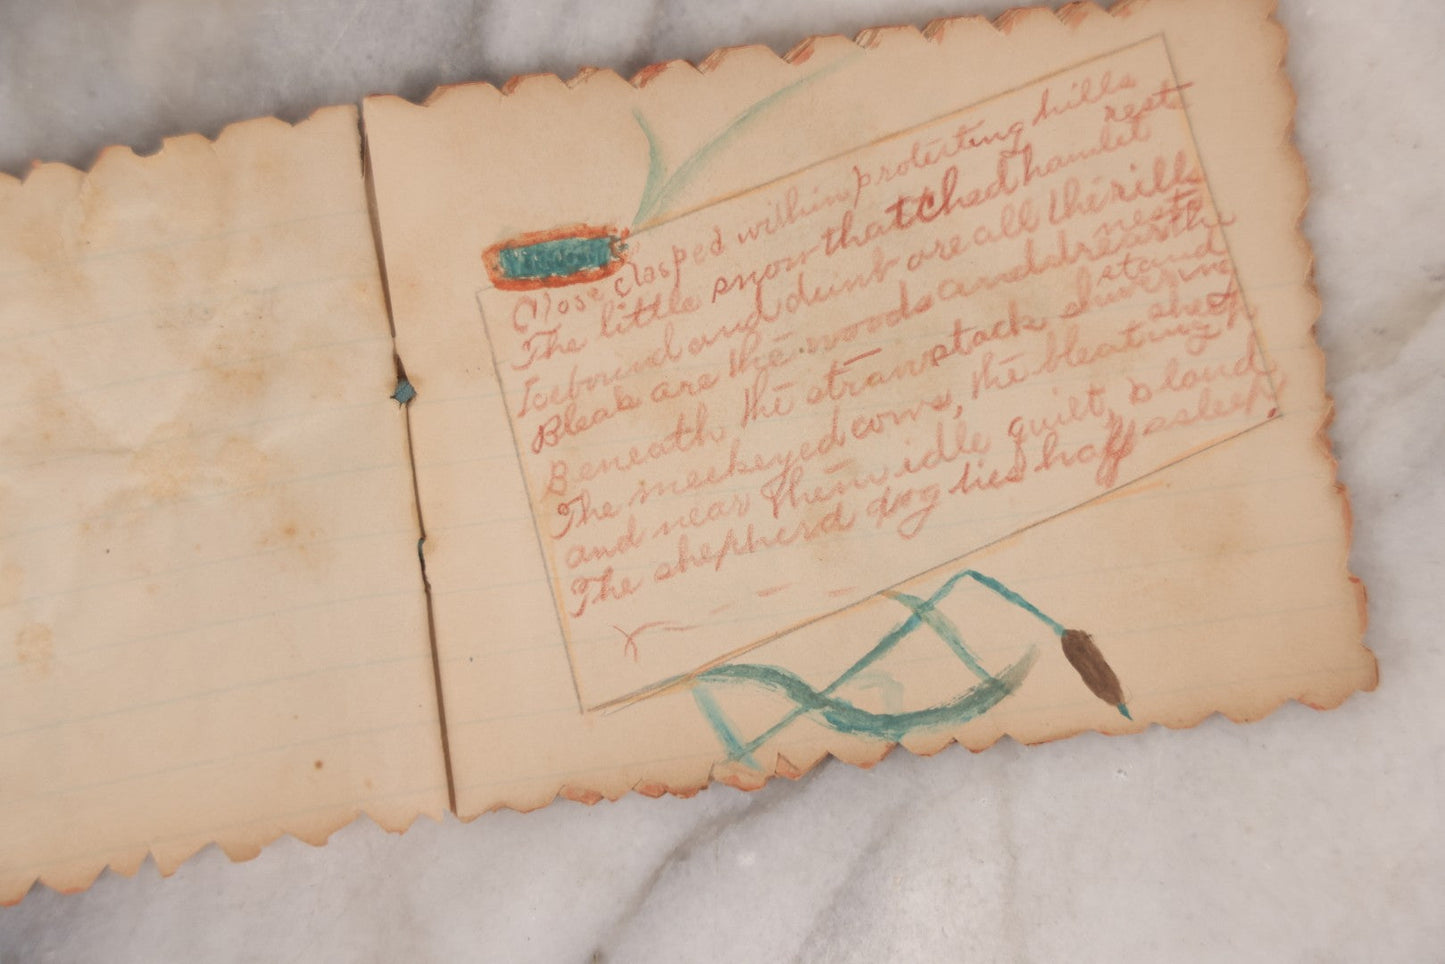 Close clasped within protecting hills
The little snow thatched hamlet rest
Icebound and dumb are all the rills
Bleak are the woods and drear the nests
Beneath the strawstack shivering stand
The meekeyed cows, the bleating sheep
and near them idle quiet, bland
The shepherd dog lies half asleep.